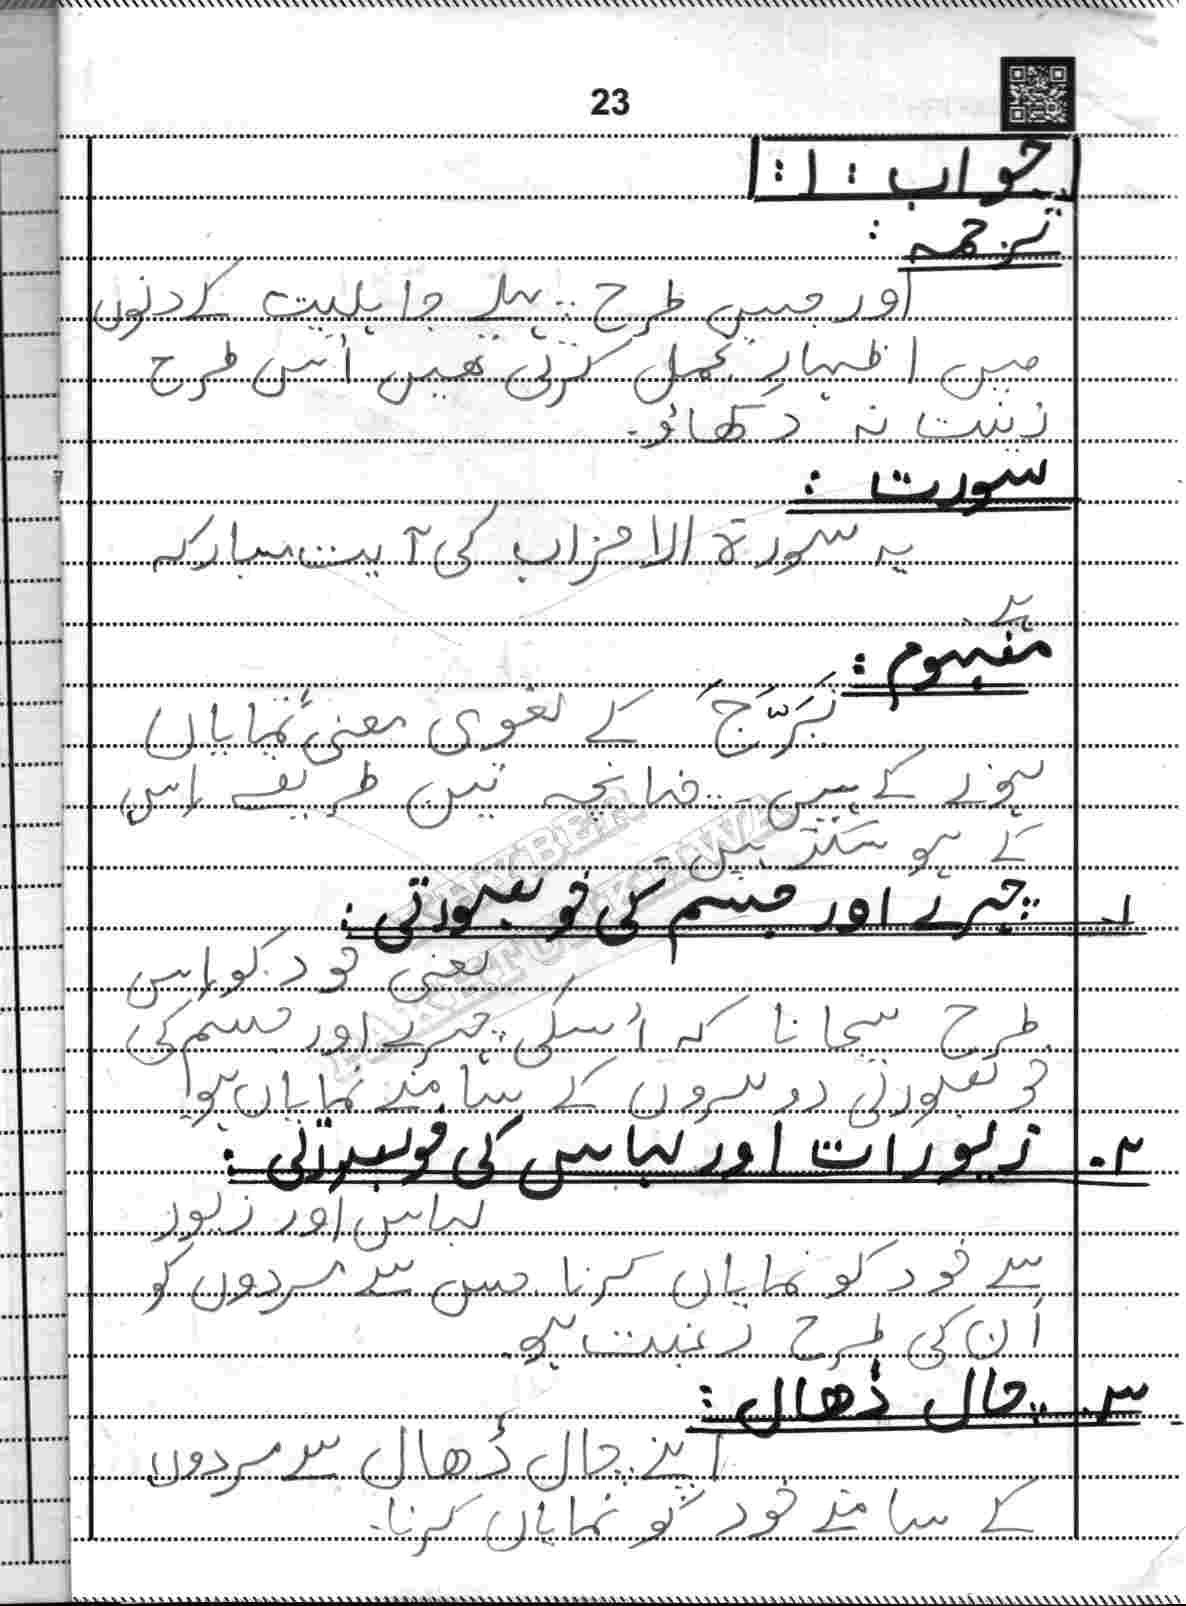 23
جواب : ۱ :
ترجمہ :
اور جس طرح پہلے جاہلیت کے دنوں
میں اظہارِ تجمل کرتی تھیں اُس طرح
زینت نہ دکھاؤ۔
سورت :
یہ سورۃ الاحزاب کی آیت مبارکہ
ہے۔
مفہوم :
تَبَرَّجَ کے لغوی معنی نمایاں
ہونے کے ہیں۔ چنانچہ تین طریقے اس
کے ہو سکتے ہیں۔
۱۔ چہرے اور جسم کی خوبصورتی :
یعنی خود کو اس
طرح سجانا کہ اُسکی چہرے اور جسم کی
خوبصورتی دوسروں کے سامنے نمایاں ہو۔
۲۔ زیورات اور لباس کی خوبصورتی :
لباس اور زیور
سے خود کو نمایاں کرنا جس سے مردوں کو
اُن کی طرح رغبت ہو۔
۳۔ چال ڈھال :
اپنے چال ڈھال سے مردوں
کے سامنے خود کو نمایاں کرنا۔